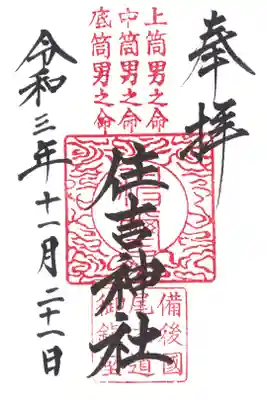 奉拝
上筒男之命
中筒男之命
底筒男之命
住吉神社
備後國
尾道
令和三年十一月二十一日